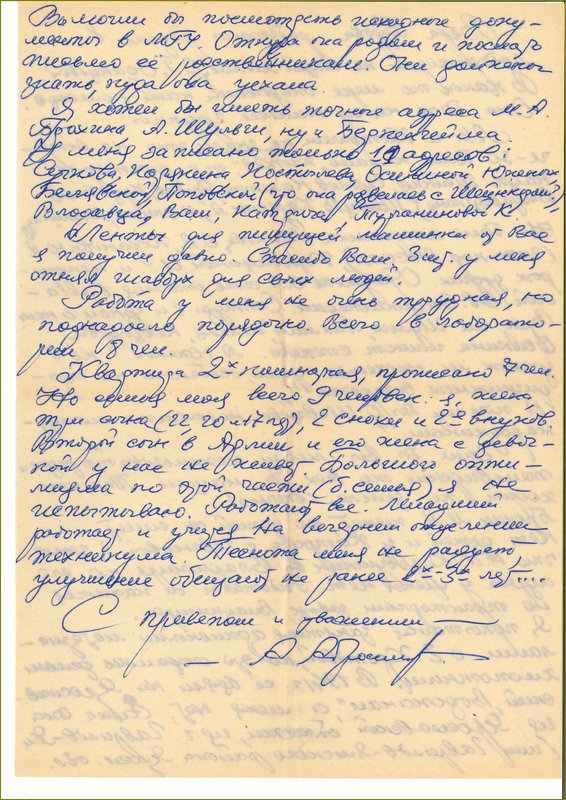 Вы могли бы посмотреть исходные доку-
менты в МГУ Откуда она родом и послать
письмо её родственникам. Они должны
знать, куда она уехала.
Я хотел бы иметь точные адреса М. А
Брагина А. Шульги, ну и
У меня записано только 11 адресов:
Службы, Костылева, Юхоных
Белявской, Поповской (что она развелась с
Власовца, Ваш, Турчаниновой К.
Ленты для пишущей машинки от Вас
я получил давно. Спасибо Вам, Зиг. у меня
отнял главбух для своих людей.
Работа у меня не очень трудная, но
поднадоело порядочно Всего в лаборато-
рии 8 чел.
Квартира 2х комнатная, прописано 7 чел.
Но семья моя всего 9 человек. я, жена,
три сына (22, 20 и 17 год), 2 снохи и 2е внуков
Второй сын в Армии и его жена с девоч-
кой у нас не живет. Большого опти-
мизма по этой части (б. семья) я не
испытываю. Работают все. Младший
работает и учится на вечернем отделении
техникума. Теснота меня не радует,
улучшение обещают не ранее 2х-3х лет....
С приветом и уважением —